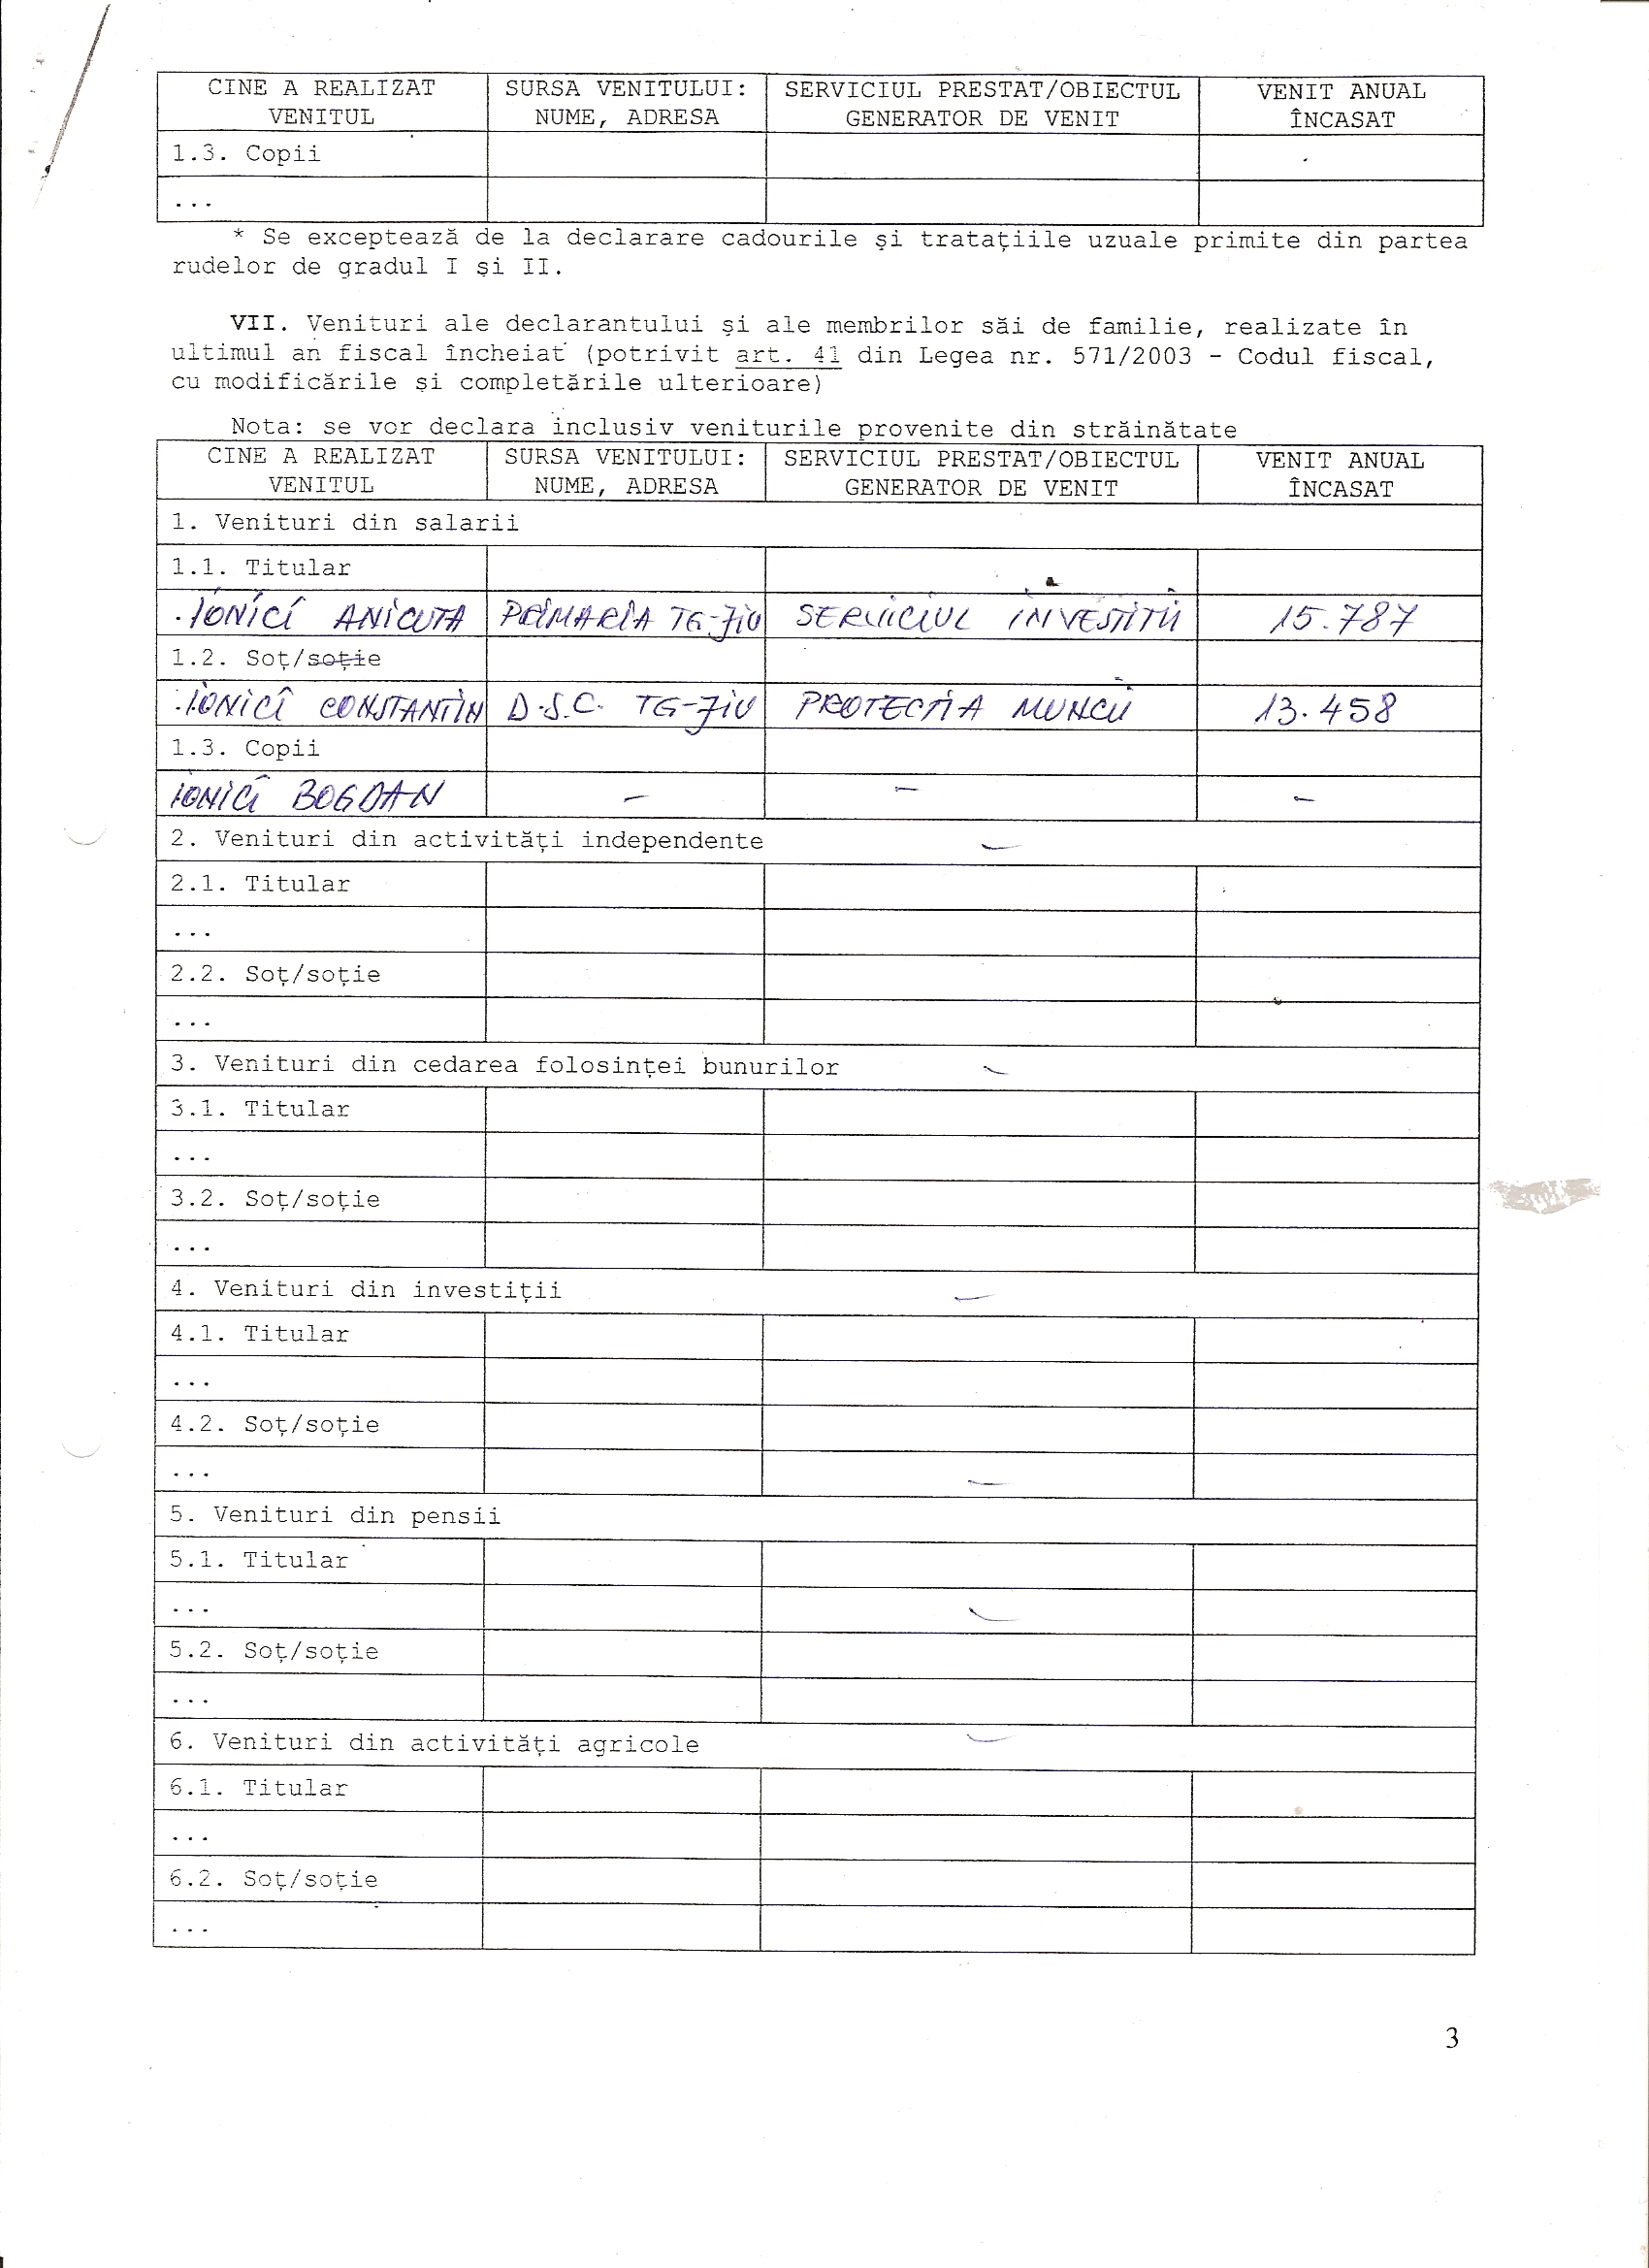 CINE A REALIZAT VENITUL SURSA VENITULUI: NUME, ADRESA SERVICIUL PRESTAT/OBIECTUL GENERATOR DE VENIT VENIT ANUAL ÎNCASAT
1.3. Copii
...
* Se exceptează de la declarare cadourile şi trataţiile uzuale primite din partea
rudelor de gradul I şi II.
VII. Venituri ale declarantului şi ale membrilor săi de familie, realizate în
ultimul an fiscal încheiat (potrivit art. 41 din Legea nr. 571/2003 - Codul fiscal,
cu modificările şi completările ulterioare)
Nota: se vor declara inclusiv veniturile provenite din străinătate
CINE A REALIZAT VENITUL SURSA VENITULUI: NUME, ADRESA SERVICIUL PRESTAT/OBIECTUL GENERATOR DE VENIT VENIT ANUAL ÎNCASAT
1. Venituri din salarii
1.1. Titular
IONICI ANICUTA PRIMARIA TG-JIU SERVICIUL INVESTITII 15.787
1.2. Soţ/soţie
IONICI CONSTANTIN D.S.C. TG-JIU PROTECTIA MUNCII 13.458
1.3. Copii
IONICI BOGDAN - - -
2. Venituri din activităţi independente -
2.1. Titular
...
2.2. Soţ/soţie
...
3. Venituri din cedarea folosinţei bunurilor -
3.1. Titular
...
3.2. Soţ/soţie
...
4. Venituri din investiţii -
4.1. Titular
...
4.2. Soţ/soţie
... -
5. Venituri din pensii
5.1. Titular
... -
5.2. Soţ/soţie
...
6. Venituri din activităţi agricole -
6.1. Titular
...
6.2. Soţ/soţie
...
3